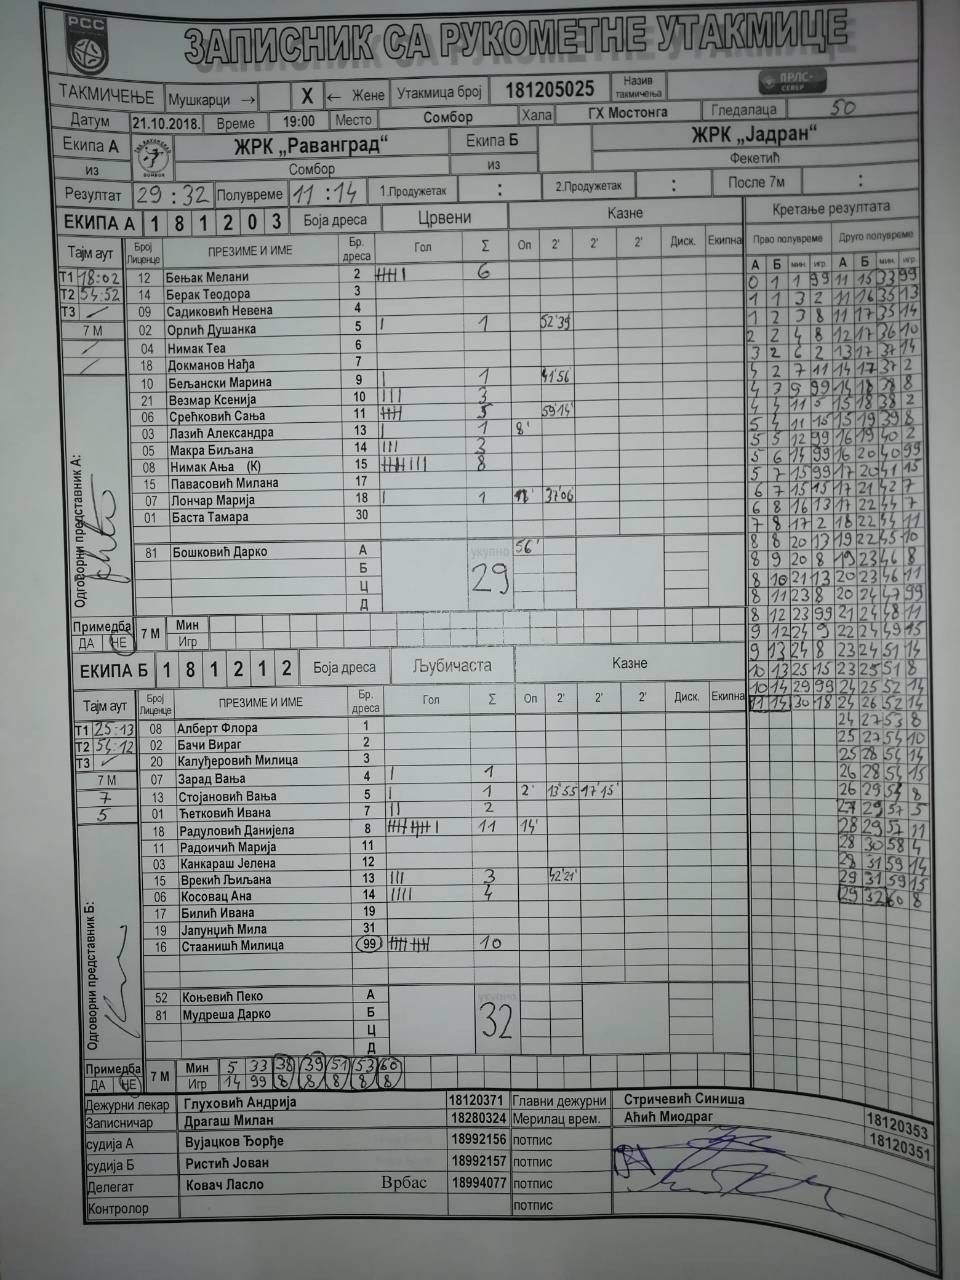 РСС
ЗАПИСНИК СА РУКОМЕТНЕ УТАКМИЦЕ
ТАКМИЧЕЊЕ Мушкарци → X ← Жене Утакмица број 181205025 Назив такмичења ПРЛС- СЕВЕР
Датум 21.10.2018. Време 19:00 Место Сомбор Хала ГХ Мостонга Гледалаца 50
Екипа А ЖРК „Раванград“ Екипа Б ЖРК „Јадран“
из Сомбор из Фекетић
Резултат 29:32 Полувреме 11:14 1.Продужетак : 2.Продужетак : После 7м :
ЕКИПА А 1 8 1 2 0 3 Боја дреса Црвени Казне Кретање резултата
Тајм аут Број Лиценце ПРЕЗИМЕ И ИМЕ Бр. дреса Гол Σ Оп 2' 2' 2' Диск. Екипна
Прво полувреме Друго полувреме
А Б мин. игр. А Б мин. игр.
Т1 18:02
Т2 54:52
Т3
7 М
12 Бењак Мелани 2 6
14 Берак Теодора 3
09 Садиковић Невена 4
02 Орлић Душанка 5 1 52'39
04 Нимак Теа 6
18 Докманов Нађа 7
10 Бељански Марина 9 1 41'56
21 Везмар Ксенија 10 3
06 Срећковић Сања 11 5 59'14'
03 Лазић Александра 13 1 8'
05 Макра Биљана 14 3
08 Нимак Ања (К) 15 8
15 Павасовић Милана 17
07 Лончар Марија 18 1 37'06
01 Баста Тамара 30
81 Бошковић Дарко А 56'
Б
Ц
Д
укупно
29
Одговорни представник А:
Примедба ДА НЕ 7 М Мин Игр
ЕКИПА Б 1 8 1 2 1 2 Боја дреса Љубичаста Казне
Тајм аут Број Лиценце ПРЕЗИМЕ И ИМЕ Бр. дреса Гол Σ Оп 2' 2' 2' Диск. Екипна
Т1 25:13
Т2 54:12
Т3
7 М
7
5
08 Алберт Флора 1
02 Бачи Вираг 2
20 Калуђеровић Милица 3
07 Зарад Вања 4 1
13 Стојановић Вања 5 1 2' 13'55 17'15'
01 Ћетковић Ивана 7 2
18 Радуловић Данијела 8 11 14'
11 Радоичић Марија 11
03 Канкараш Јелена 12
15 Врекић Љиљана 13 3 42'21'
06 Косовац Ана 14 4
17 Билић Ивана 19
19 Јапунџић Мила 31
16 Стаанишћ Милица 99 10
52 Коњевић Пеко А
81 Мудреша Дарко Б
Ц
Д
укупно
32
Одговорни представник Б:
Примедба ДА НЕ 7 М
Мин 5 33 38 39 51 53 60
Игр 14 99 8 8 8 8 8
0 1 1 99 11 15 33 99
1 1 3 2 11 16 35 13
1 2 3 8 11 17 35 14
2 2 4 8 12 17 36 10
3 2 6 2 13 17 37 14
4 2 7 11 14 17 37 2
4 3 9 99 14 18 38 8
4 4 11 5 15 18 38 2
5 4 11 15 15 19 39 8
5 5 12 99 16 19 40 2
5 6 14 99 16 20 40 99
5 7 15 99 17 20 41 15
6 7 15 15 17 21 42 7
6 8 16 13 17 22 44 7
7 8 17 2 18 22 44 11
8 8 20 13 19 22 45 10
8 9 20 8 19 23 46 8
8 10 21 13 20 23 46 11
8 11 23 8 20 24 47 99
8 12 23 99 21 24 48 11
9 12 24 9 22 24 49 15
9 13 24 8 23 24 51 14
10 13 25 15 23 25 51 8
10 14 29 99 24 25 52 14
11 14 30 18 24 26 52 14
24 27 53 8
25 27 54 10
25 28 54 14
26 28 54 15
26 29 54 8
27 29 57 5
28 29 57 11
28 30 58 4
28 31 59 14
29 31 59 15
29 32 60 8
Дежурни лекар Глуховић Андрија 18120371 Главни дежурни Стричевић Синиша 18120353
Записничар Драгаш Милан 18280324 Мерилац врем. Аћић Миодраг 18120351
судија А Вујацков Ђорђе 18992156 потпис
судија Б Ристић Јован 18992157 потпис
Делегат Ковач Ласло Врбас 18994077 потпис
Контролор потпис